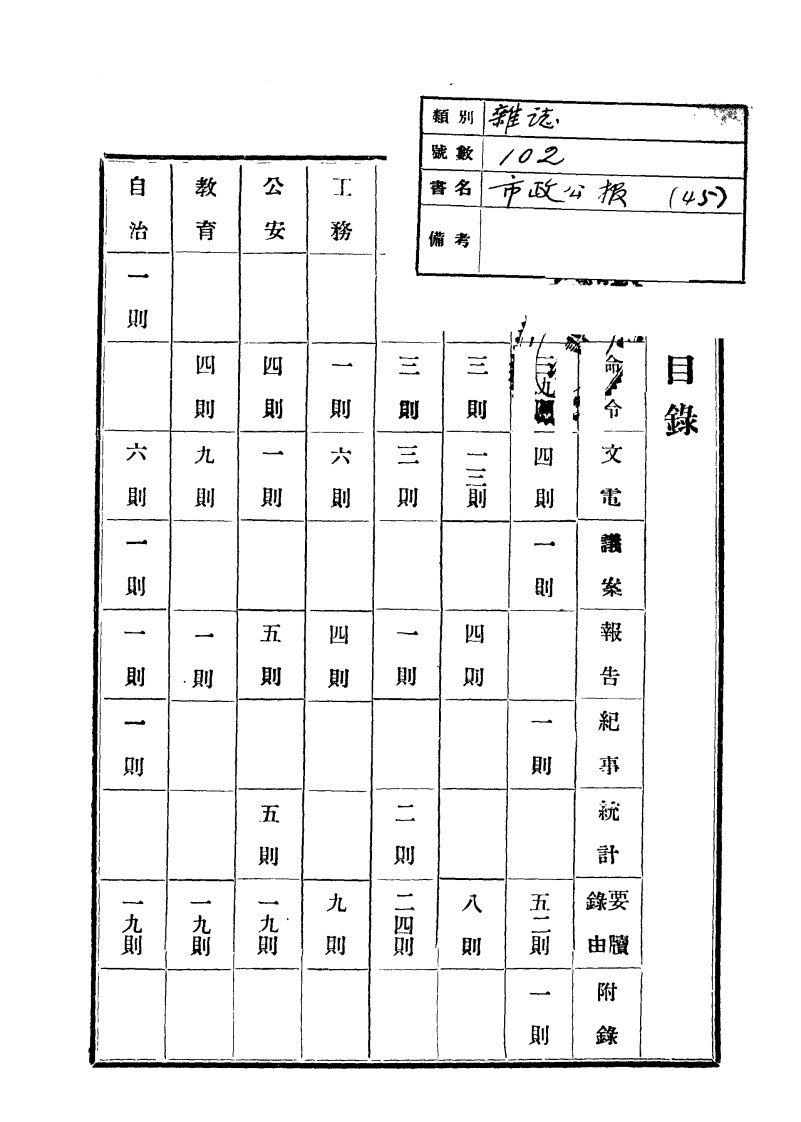 類別 雜誌
號數 102
書名 市政公报 (45)
備考
目錄
命令 文電 議案 報告 紀事 統計 要牘錄由 附錄
四則 一則 一則 五二則 一則
三則 一三則 四則 八則
三則 三則 一則 二則 二四則
工務 一則 六則 四則 九則
公安 四則 一則 五則 五則 一九則
教育 四則 九則 一則 一九則
自治 一則 六則 一則 一則 一則 一九則